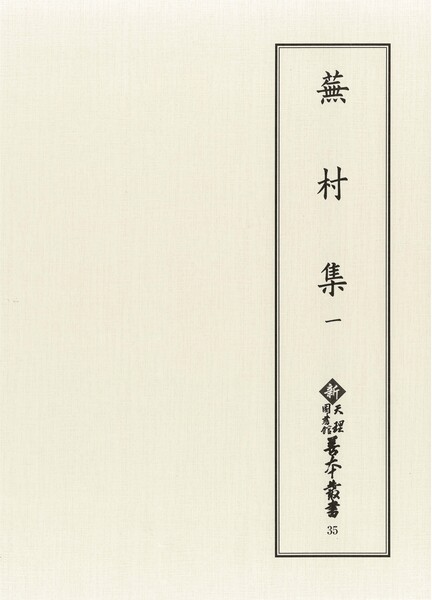 蕪村集
一
新
天理
図書館
善本叢書
35